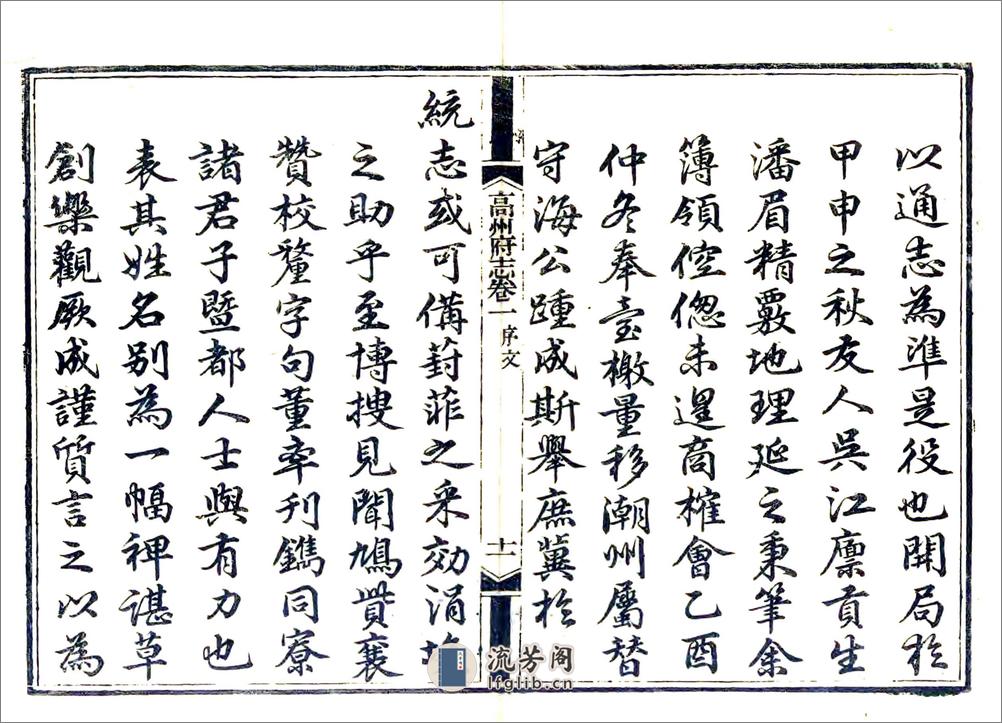 以通志為準是役也開局於
甲申之秋友人吳江廪貢生
潘眉精覈地理延之秉筆余
簿領倥偬未遑商榷會乙酉
仲冬奉臺檄量移潮州屬替
守海公踵成斯舉庶冀於
高州府志卷一 序文 十一
統志或可備葑菲之采効涓
之助乎至博搜見聞鳩貲襄
贊校釐字句董率刊鐫同寮
諸君子暨都人士與有力也
表其姓名別為一幅裨諶草
創樂觀厥成謹質言之以為
流芳阁
lfglib.cn